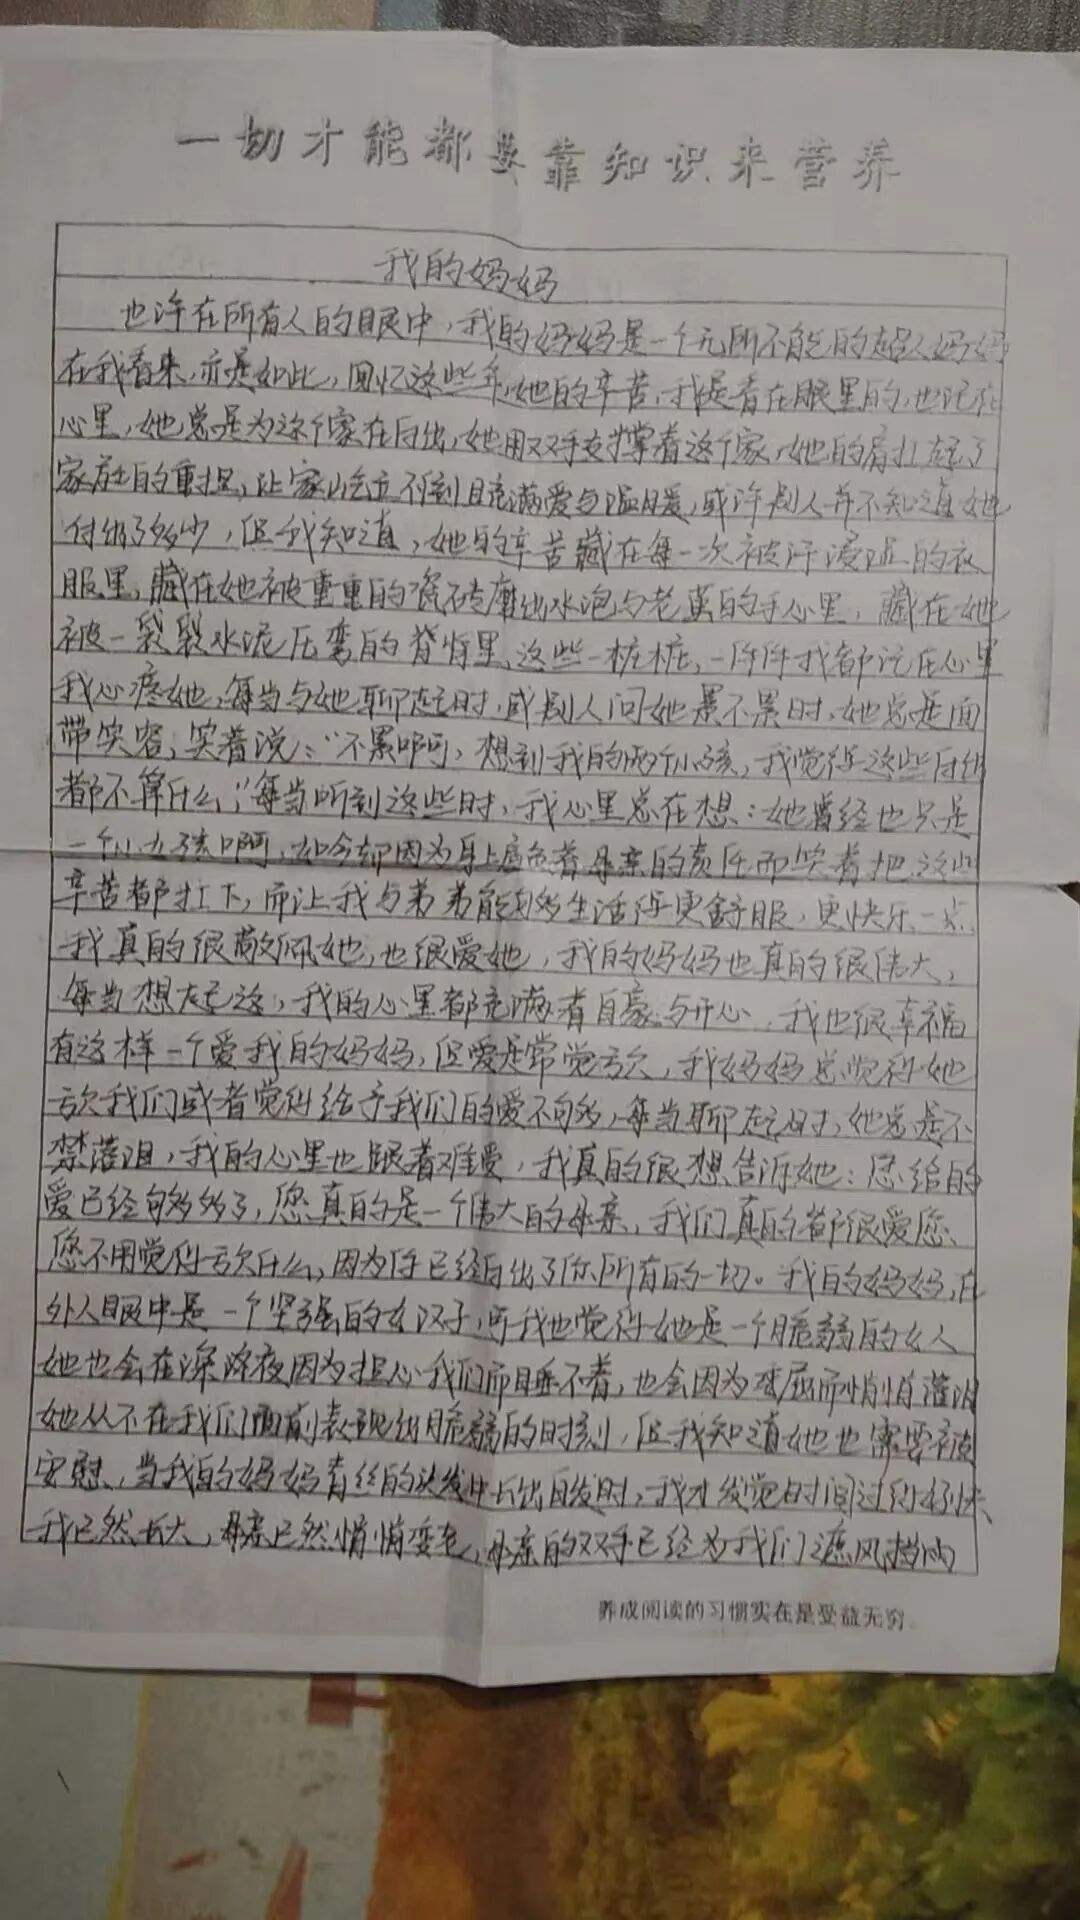 一切才能都要靠知识来营养
我的妈妈
也许在所有人的眼中，我的妈妈是一个无所不能的超人妈妈
在我看来，亦是如此，回忆这些年，她的辛苦，我是看在眼里的，也记在
心里，她总是为这个家在付出，她用双手支撑着这个家，她的肩扛起了
家庭的重担，让家屹立不倒且充满爱与温暖，或许别人并不知道她
付出了多少，但我知道，她的辛苦藏在每一次被汗浸湿的衣
服里，藏在她被重重的瓷砖磨出水泡与老茧的手心里，藏在她
被一袋袋水泥压弯的脊背里、这些一桩桩，一件件我都记在心里
我心疼她，每当与她聊起时，或别人问她累不累时，她总是面
带笑容，笑着说：“不累啊，想到我的两个小孩，我觉得这些付出
都不算什么，”每当听到这些时，我心里总在想：她曾经也只是
一个小女孩啊，如今却因为身上肩负着母亲的责任而笑着把这些
辛苦都扛下，而让我与弟弟能够生活得更舒服，更快乐一点
我真的很敬佩她，也很爱她，我的妈妈也真的很伟大，
每当想起这，我的心里都充满着自豪与开心，我也很幸福
有这样一个爱我的妈妈，但爱是常觉亏欠，我妈妈总觉得她
亏欠我们或者觉得给予我们的爱不够，每当聊起时，她总是不
禁落泪，我的心里也跟着难受，我真的很想告诉她：您给的
爱已经够多了，您真的是一个伟大的母亲，我们真的都很爱您、
您不用觉得亏欠什么，因为你已经付出了你所有的一切。我的妈妈，在
外人眼中是一个坚强的女汉子，可我也觉得她是一个脆弱的女人
她也会在深深夜因为担心我们而睡不着，也会因为委屈而悄悄落泪
她从不在我们面前表现出脆弱的时刻，但我知道她也需要被
安慰、当我的妈妈青丝的头发中长出白发时，我才发觉时间过得好快、
我已然长大，母亲已然悄悄变老，母亲的双手已经为我们遮风挡雨
养成阅读的习惯实在是受益无穷